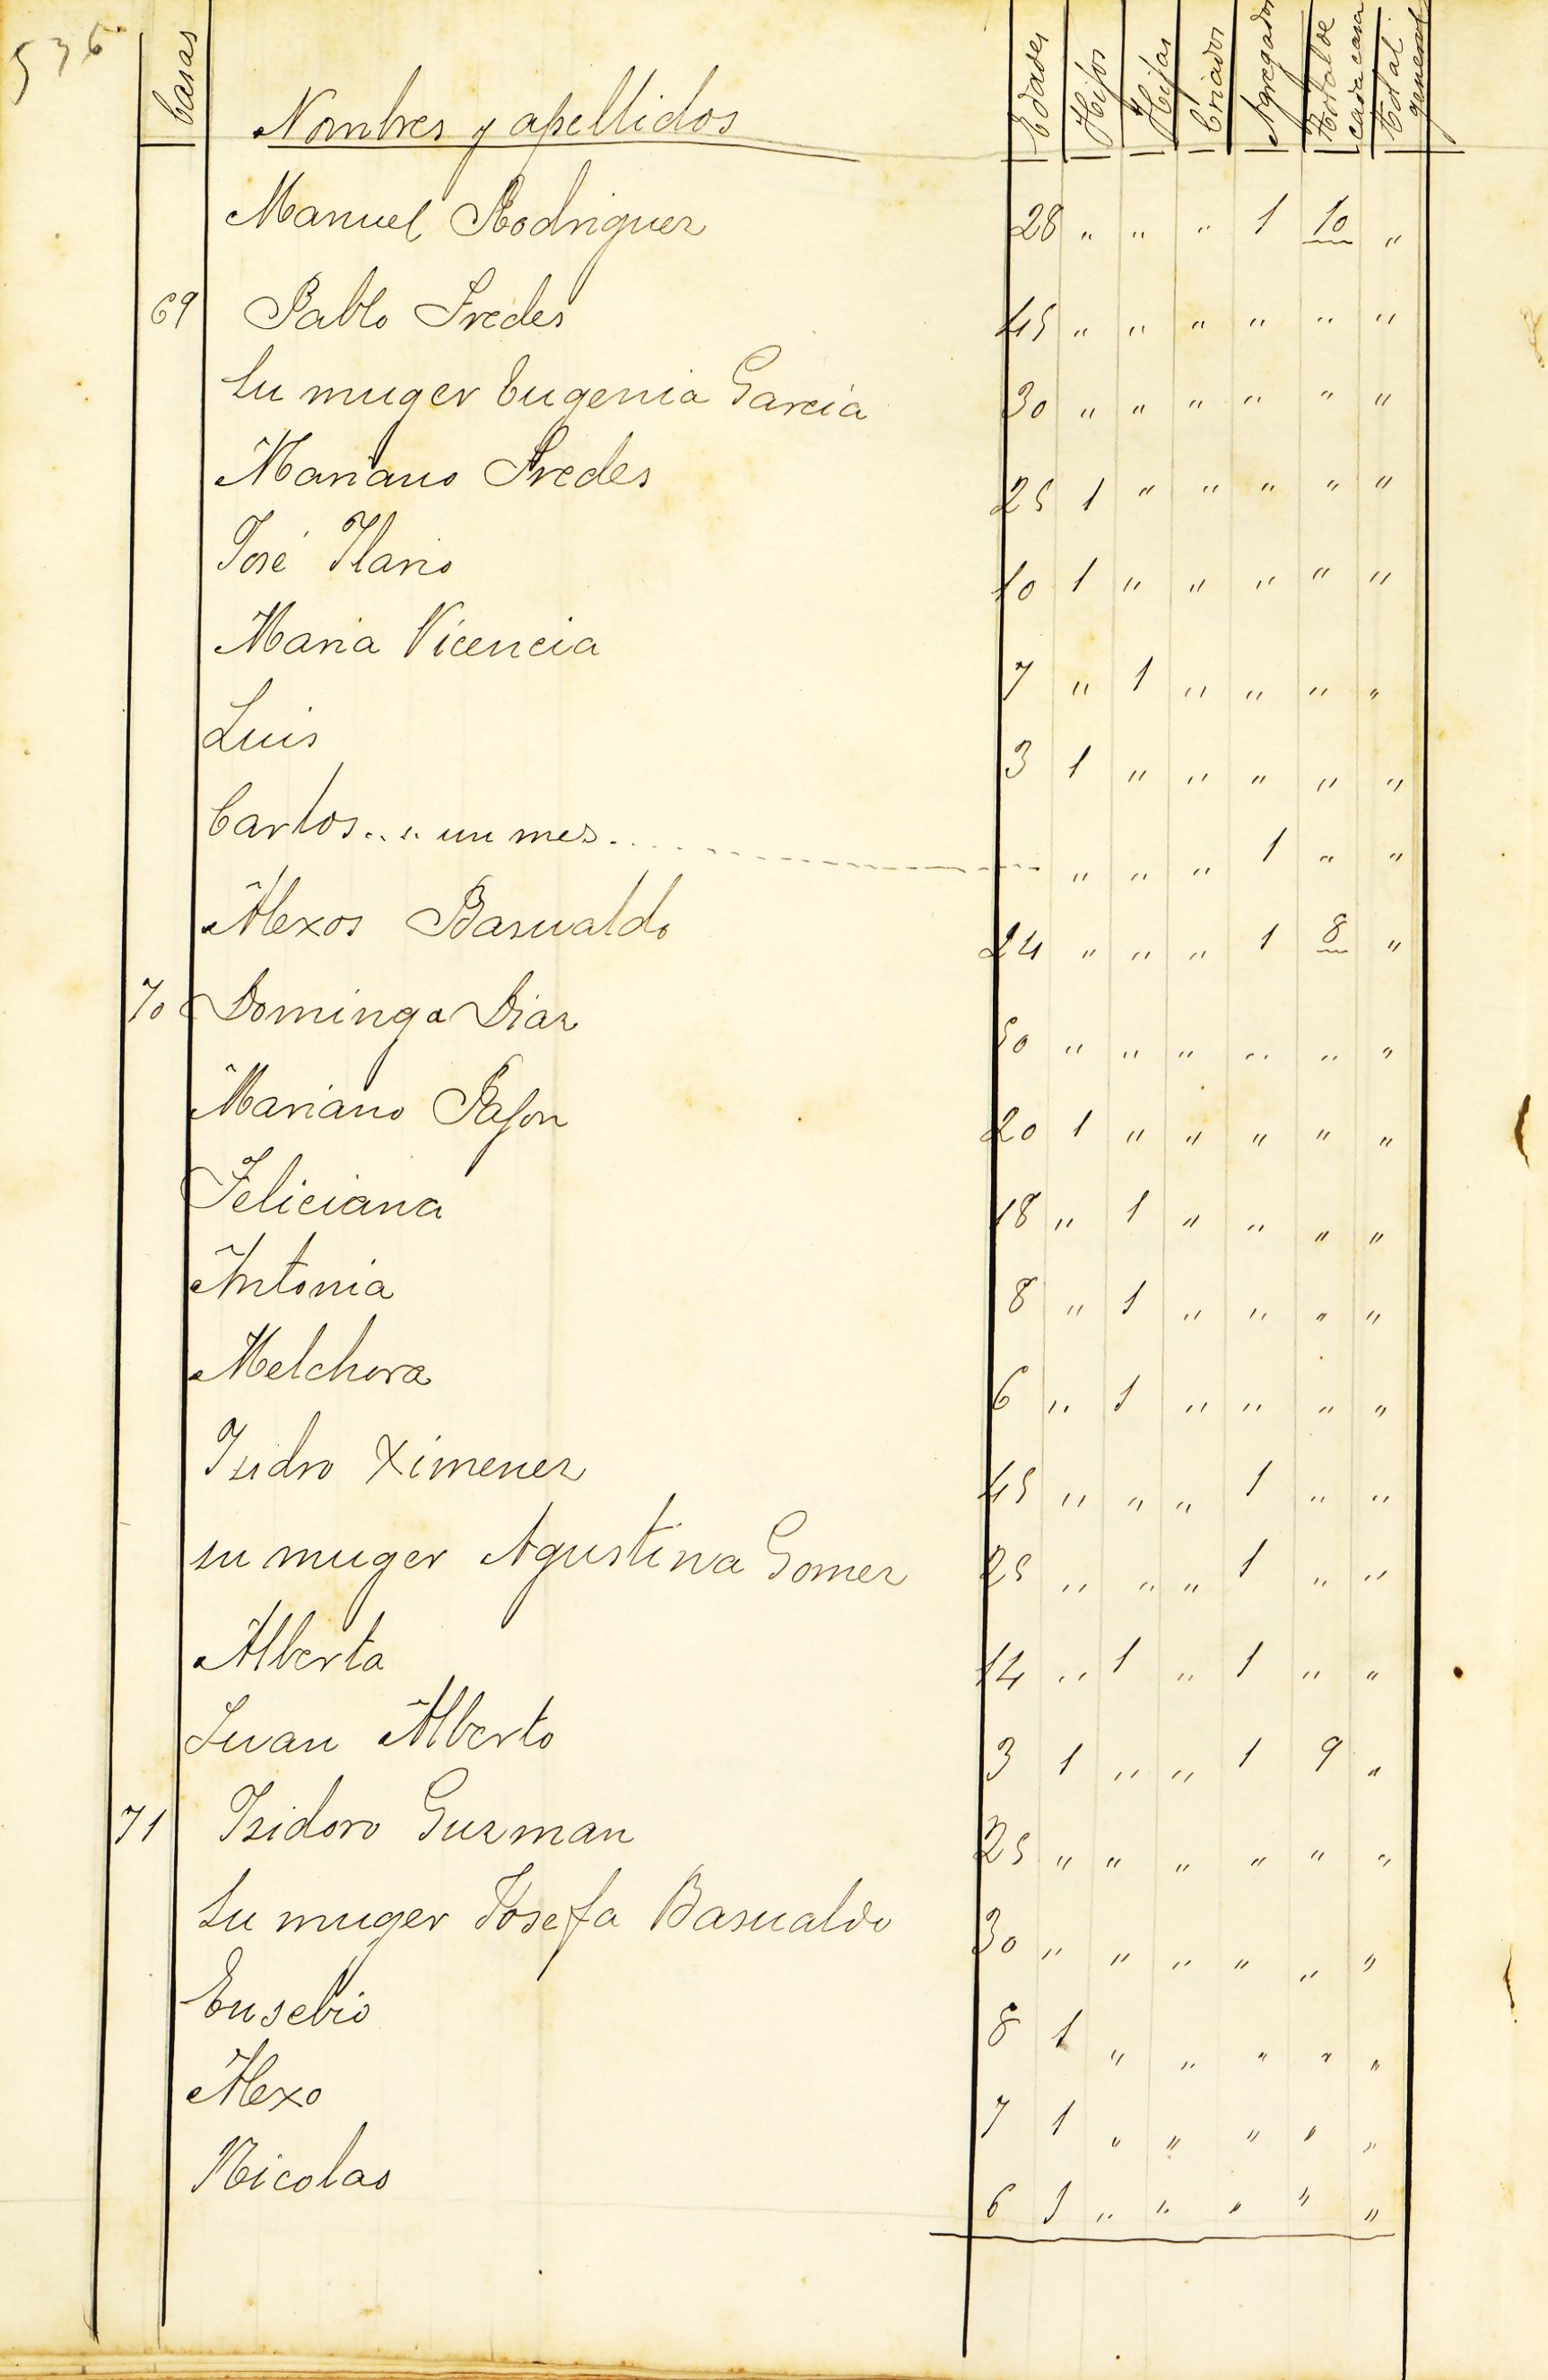 536
Casas Nombres y apellidos Edades Hijos Hijas Criados Agregados Total de cada casa Total general
Manuel Rodriguez 28 " " " 1 10 "
69 Pablo Fredes 45 " " " " " "
Su muger Eugenia Garcia 30 " " " " " "
Mariano Fredes 25 1 " " " " "
José Ilario 10 1 " " " " "
Maria Vicencia 7 " 1 " " " "
Luis 3 1 " " " " "
Carlos.. ". un mes. " " " 1 " "
Alexos Basualdo 24 " " " 1 8 "
70 Dominga Diaz 50 " " " " " "
Mariano Pason 20 1 " " " " "
Feliciana 18 " 1 " " " "
Antonia 8 " 1 " " " "
Melchora 6 " 1 " " " "
Isidro Ximenez 45 " " " 1 " "
su muger Agustina Gomez 25 " " " 1 " "
Alberta 14 " 1 " 1 " "
Juan Alberto 3 1 " " 1 9 "
71 Isidoro Guzman 25 " " " " " "
Su muger Josefa Basualdo 30 " " " " " "
Eusebio 8 1 " " " " "
Alexo 7 1 " " " " "
Nicolas 6 1 " " " " "